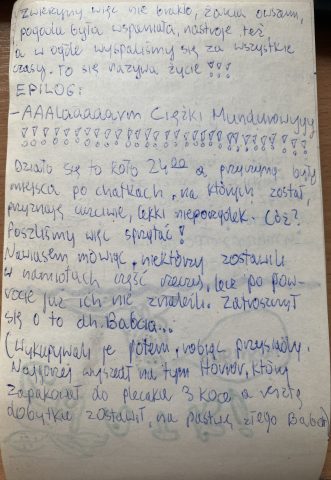 zwierzyny więc nie brakło, żarcia owszem,
pogoda była wspaniała, nastroje też
a w ogóle wyspaliśmy się za wszystkie
czasy. To się nazywa życie !!!
EPILOG:
- AAALaaaaarm Ciężki Mundurowyyy
!!!!!!!!!!!!!!!!!!!!!!!
Działo się to koło 24⁰⁰ a przyczyną były
miejsca po chatkach, na których został,
przyznaję uczciwie, lekki nieporządek. Cóż?
Poszliśmy więc sprzątać!
Nawiasem mówiąc, niektórzy zostawili
w namiotach część rzeczy, lecz po pow-
rocie już ich nie znaleźli. Zatroszczył
się o to dh. Babcia...
(Wykupywali je potem, robiąc przysiady.
Najgorzej wyszedł na tym, który
zapakował do plecaka 3 koce a resztę
dobytku zostawił, na pastwę złego